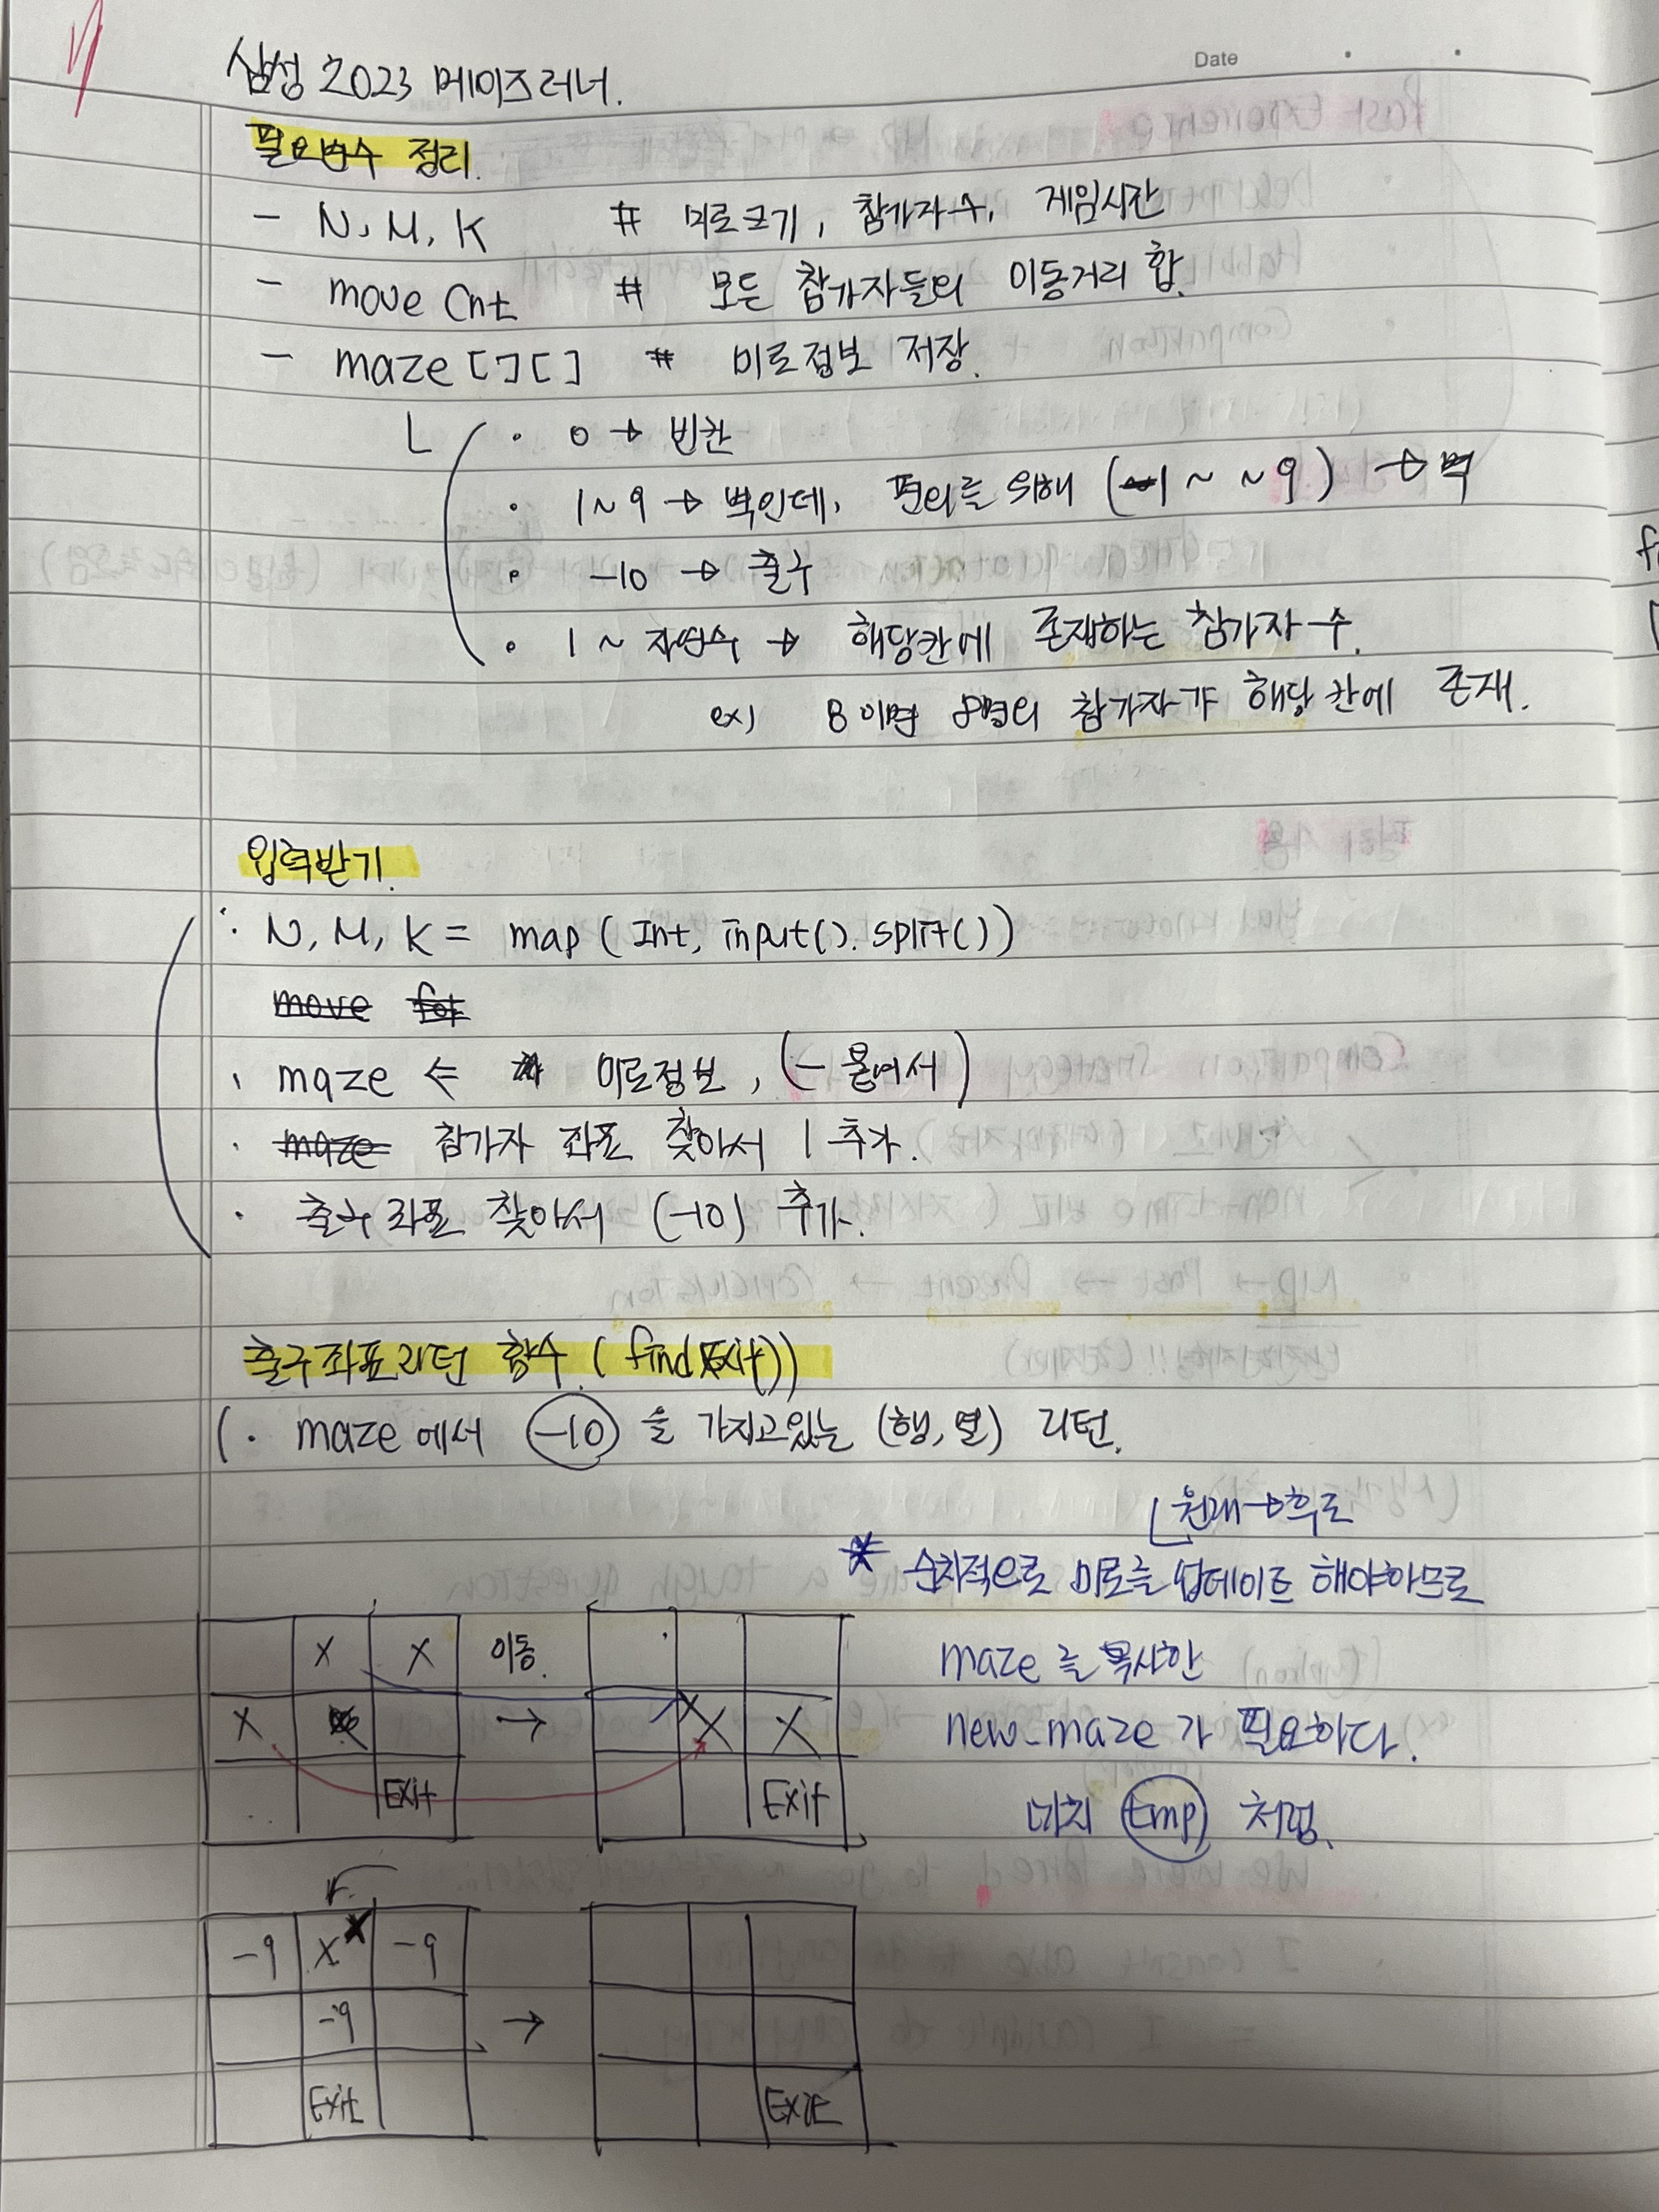 Date
삼성 2023 메이즈러너.
필요변수 정리.
- N, M, K # 미로크기, 참가자수, 게임시간
- move Cnt # 모든 참가자들의 이동거리 합.
- maze [ ] [ ] # 미로정보 저장.
· 0 → 빈칸
· 1~9 → 벽인데, 편의를 위해 (-1 ~ ~9) → 벽
· -10 → 출구
· 1 ~ 자연수 → 해당칸에 존재하는 참가자 수.
ex) 8이면 8명의 참가자가 해당 칸에 존재.
입력받기.
· N, M, K = map ( Int, input(). split())
move for
· maze ⇐ 미로정보, (- 붙여서)
· maze 참가자 좌표 찾아서 1 추가.
· 출구 좌표 찾아서 (-10) 추가.
출구좌표리턴 함수. ( find Exit())
· maze 에서 -10 을 가지고있는 (행, 열) 리턴.
원래→후로
* 순차적으로 미로를 업데이트 해야하므로
maze 를 복사한
new_maze 가 필요하다.
마치 tmp 처럼.
X X 이동.
X → X X X
Exit Exit
r.
-9 X -9
-9 →
Exit Exit